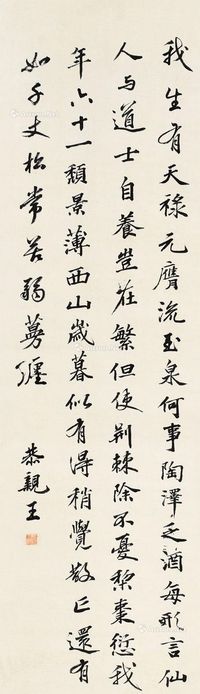 我生有天祿元膺流玉泉何事陶澤乏酒每形言仙
人与道士自養豈在繁但使荊棘除不憂梨棗愆我
年六十一頹景薄西山歲暮似有得稍覺散亡還有
如千丈松常苦弱蔓纏
恭親王